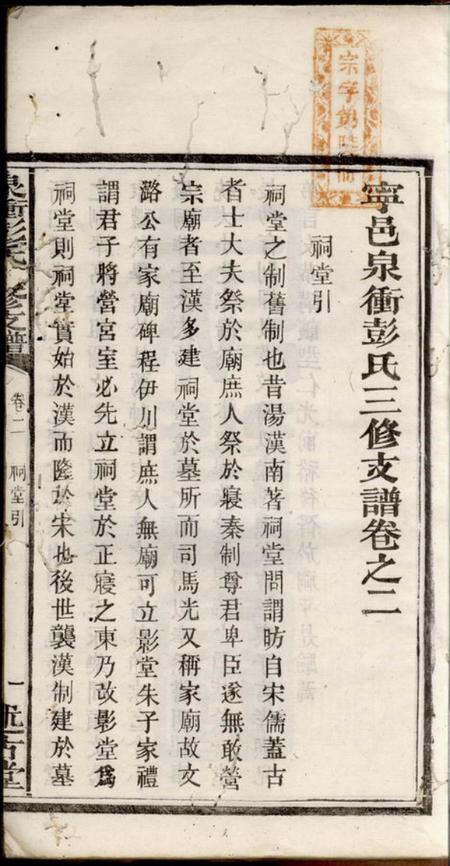 宗字第陸號
寧邑泉衝彭氏三修支譜卷之二
祠堂引
祠堂之制舊制也昔湯漢南著祠堂問謂昉自宋儒蓋古
者士大夫祭於廟庶人祭於寢秦制尊君卑臣遂無敢營
宗廟者至漢多建祠堂於墓所而司馬光又稱家廟故文
潞公有家廟碑程伊川謂庶人無廟可立影堂朱子家禮
謂君子將營宮室必先立祠堂於正寢之東乃改影堂爲
祠堂則祠堂實始於漢而隆於宋也後世襲漢制建於墓
泉衝彭氏三修支譜
卷二
祠堂引
一
述古堂